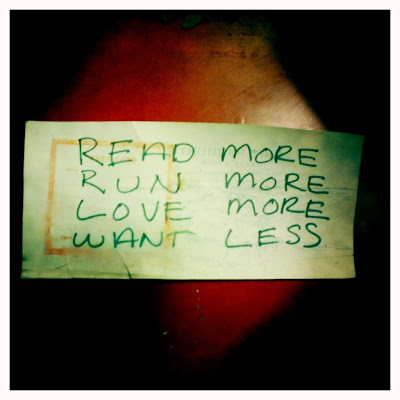 READ MORE
RUN MORE
LOVE MORE
WANT LESS